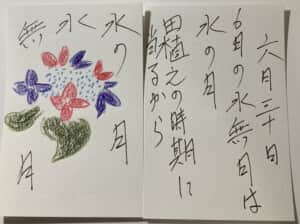 六月三十日
6月の水無月は
水の月
田植えの時期に
当るから
水の月
水無月